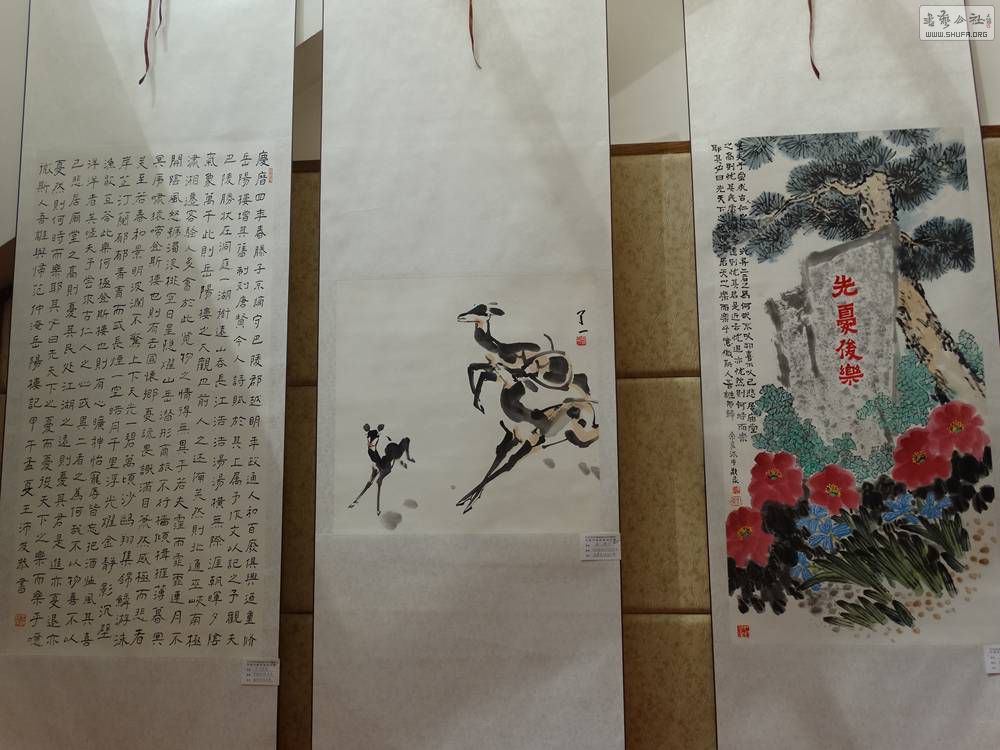 慶曆四年春滕子京謫守巴陵郡越明年政通人和百廢俱興迺重脩
岳陽樓增其舊制刻唐賢今人詩賦於其上属予作文以記之予觀夫
巴陵勝狀在洞庭一湖銜遠山吞長江浩浩湯湯橫無際涯朝暉夕陰
氣象萬千此則岳陽樓之大觀也前人之述備矣然則北通巫峽南極
瀟湘遷客騷人多會於此覽物之情得無異乎若夫霪雨霏霏連月不
開陰風怒號濁浪排空日星隱耀山岳潛形商旅不行檣傾楫摧薄暮冥
冥虎嘯猿啼登斯樓也則有去國懷鄉憂讒畏譏滿目蕭然感極而悲者
矣至若春和景明波瀾不驚上下天光一碧萬頃沙鷗翔集錦鱗游泳
岸芷汀蘭郁郁青青而或長煙一空皓月千里浮光耀金靜影沉璧
漁歌互答此樂何極登斯樓也則有心曠神怡寵辱皆忘把酒臨風其喜
洋洋者矣嗟夫予嘗求古仁人之心或異二者之為何哉不以物喜不以
己悲居廟堂之高則憂其民處江湖之遠則憂其君是進亦憂退亦
憂然則何時而樂耶其必曰先天下之憂而憂後天下之樂而樂乎噫
微斯人吾誰與歸范仲淹岳陽樓記甲午孟夏王沛友敬書
了一
先憂後樂
書藝公社
WWW.SHUFA.ORG